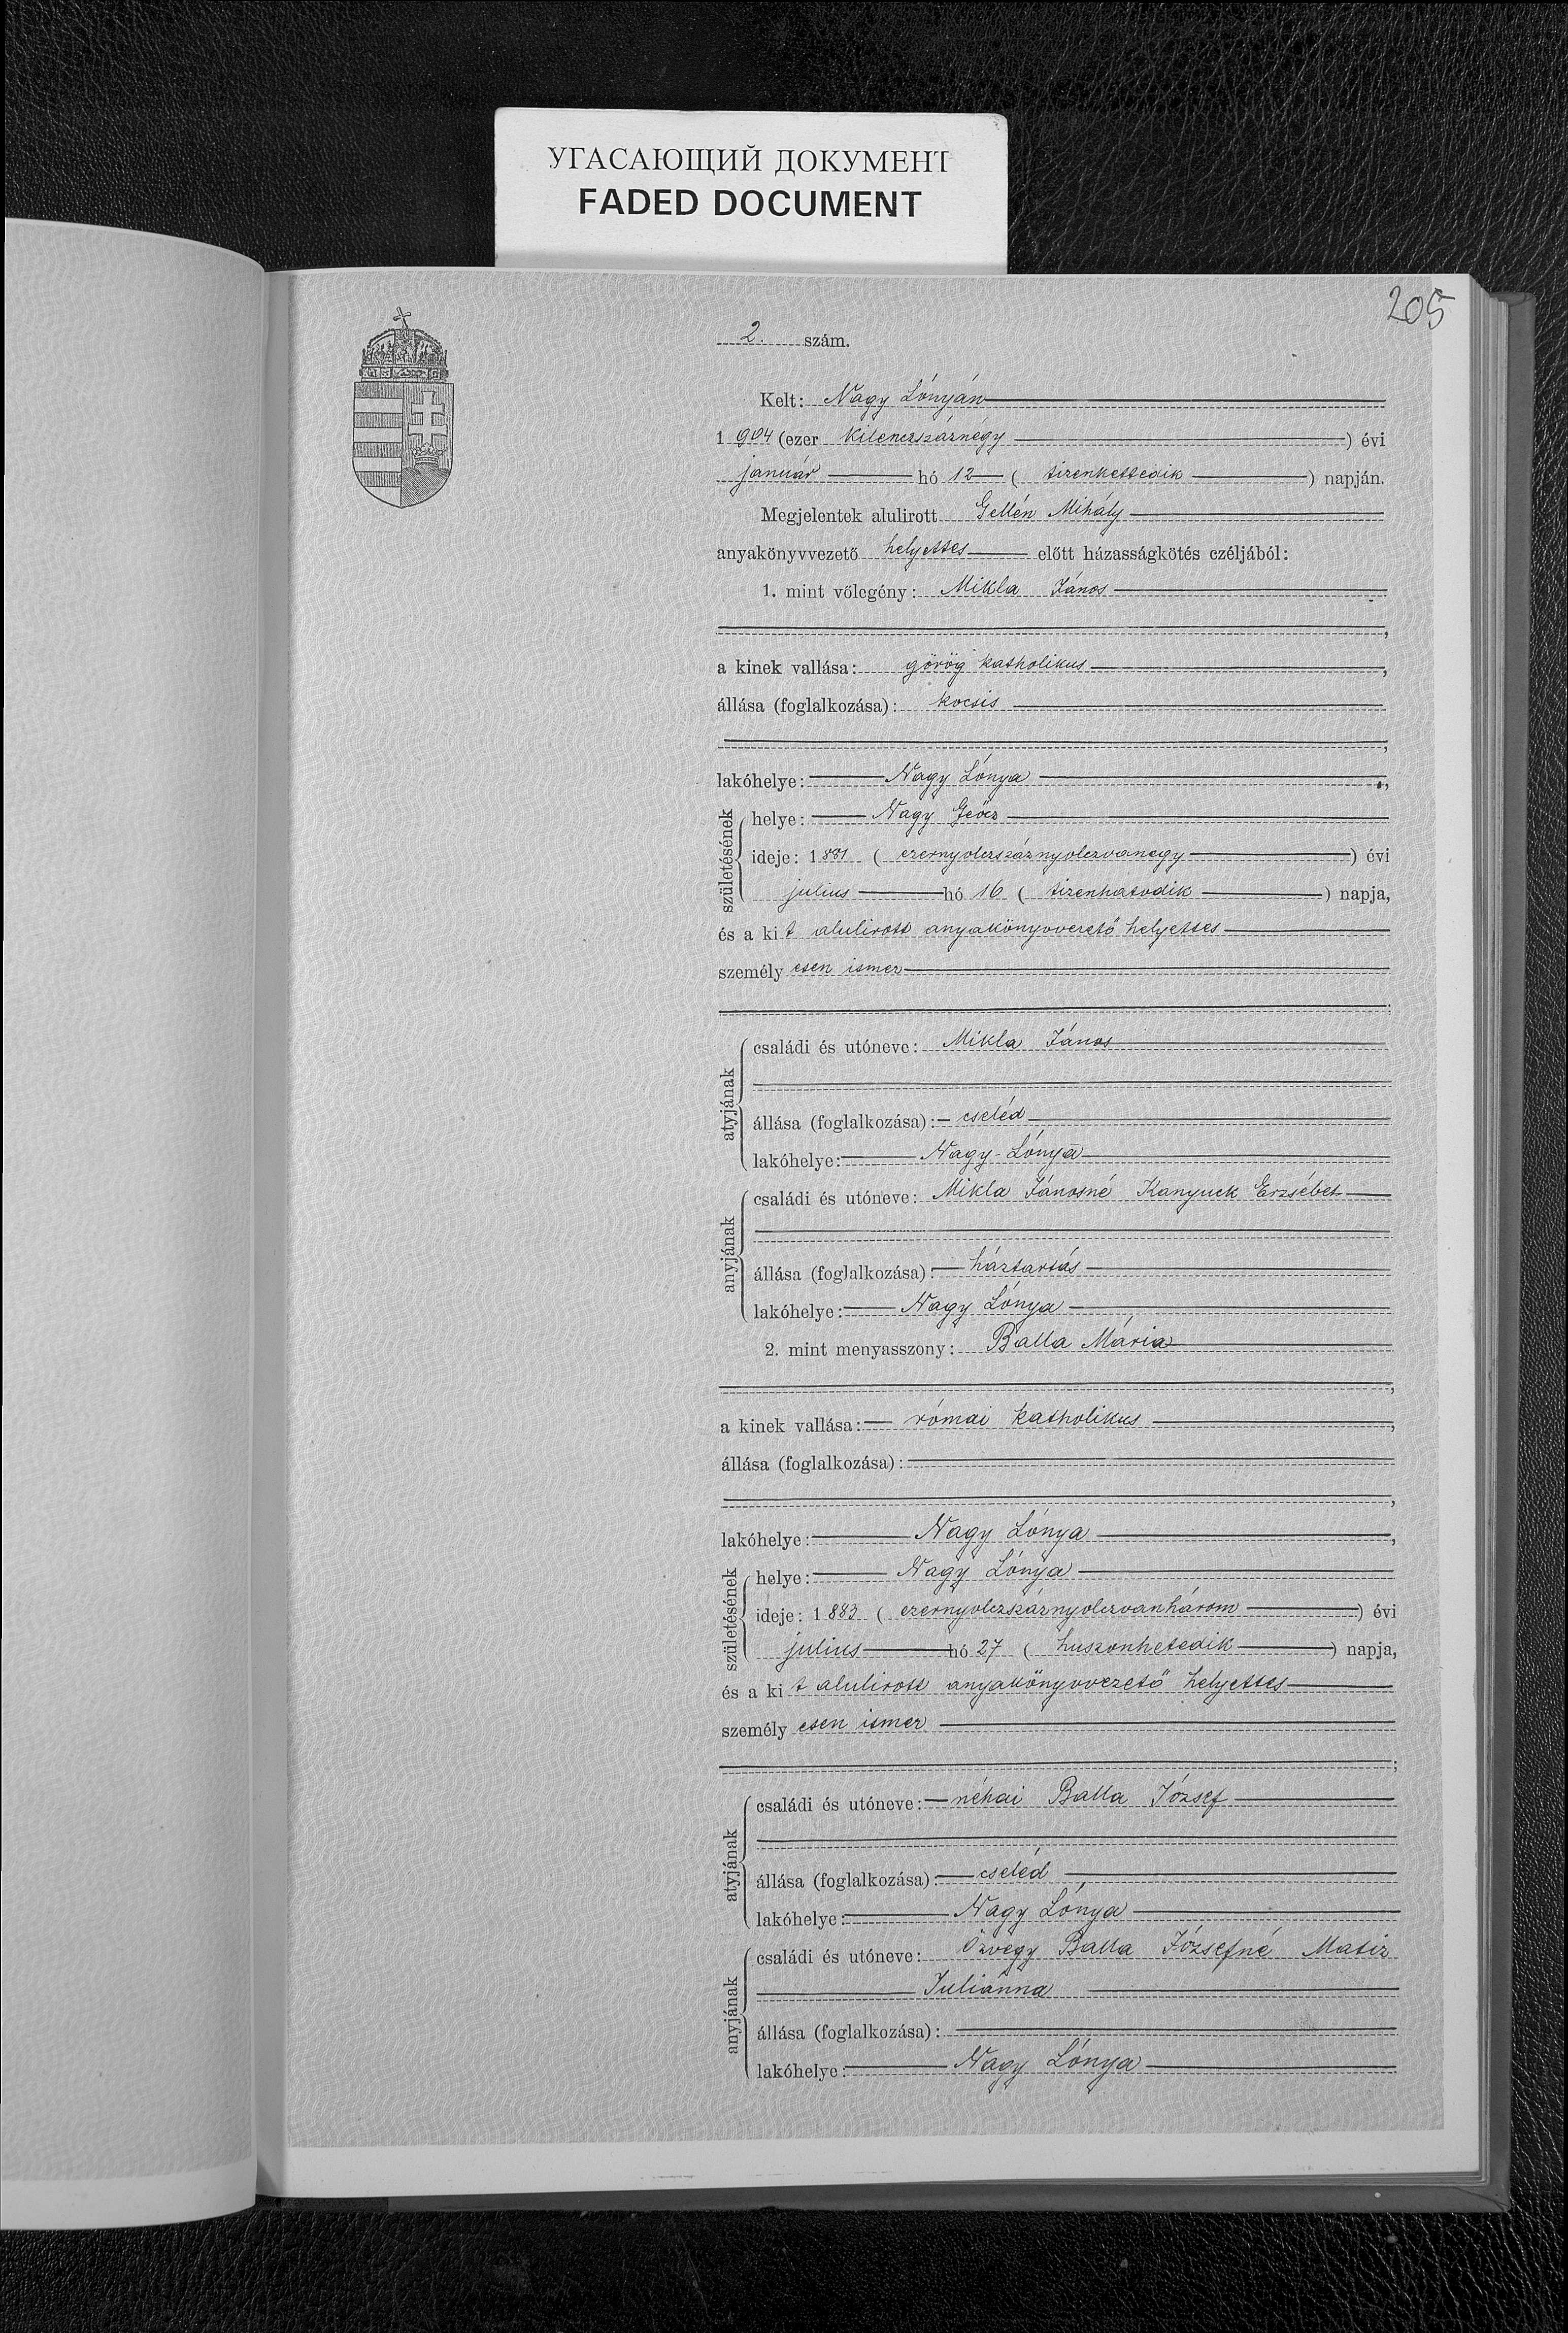 УГАСАЮЩИЙ ДОКУМЕНТ
FADED DOCUMENT
205
2. szám.
Kelt: Nagy Lónyán
1 904 (ezer kilenczszáznégy) évi
január hó 12 (tizenkettedik) napján.
Megjelentek alulirott Gellén Mihály
anyakönyvvezető helyettes előtt házasságkötés czéljából:
1. mint vőlegény: Mikla János
a kinek vallása: görög katholikus,
állása (foglalkozása): kocsis
lakóhelye: Nagy Lónya,
születésének
helye: Nagy Geőcz
ideje: 1 881 (ezernyolczszáznyolczvanegy) évi
julius hó 16 (tizenhatodik) napja,
és a ki t alulirott anyakönyvvezető helyettes
személy esen ismer
atyjának
családi és utóneve: Mikla János
állása (foglalkozása): cseléd
lakóhelye: Nagy-Lónya
anyjának
családi és utóneve: Mikla Jánosné Kanyuck Erzsébet
állása (foglalkozása): háztartás
lakóhelye: Nagy Lónya
2. mint menyasszony: Balla Mária
a kinek vallása: római katholikus,
állása (foglalkozása):
lakóhelye: Nagy Lónya,
születésének
helye: Nagy Lónya
ideje: 1 883 (ezernyolczszáznyolczvanhárom) évi
julius hó 27 (huszonhetedik) napja,
és a ki t alulirott anyakönyvvezető helyettes
személy esen ismer
atyjának
családi és utóneve: néhai Balla József
állása (foglalkozása): cseléd
lakóhelye: Nagy Lónya
anyjának
családi és utóneve: Özvegy Balla Józsefné Matiz
Juliánna
állása (foglalkozása):
lakóhelye: Nagy Lónya